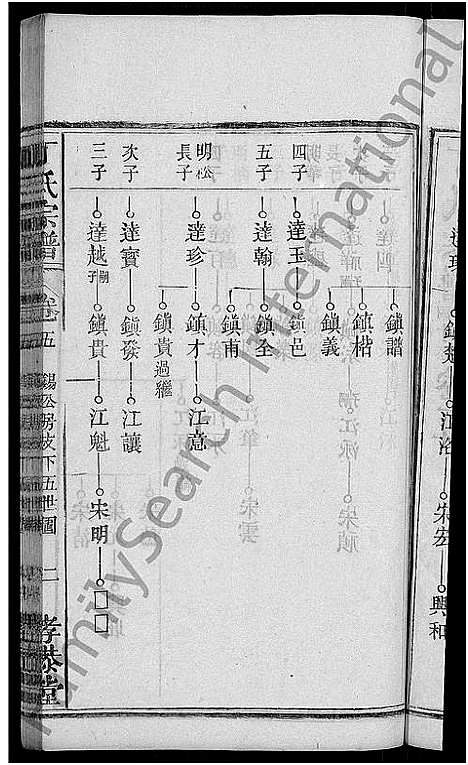 達珍 鎮楚 江洛 宋宏 興和
鎮譜
鎮楷
鎮義
四子 達玉 鎮邑
五子 達翰 鎮全
鎮南
明松
長子 達珍 鎮才 江意
鎮貴 過繼
次子 達寶 鎮發 江讓
三子 達越 嗣子 鎮貴 江魁 宋明 □□
丁氏宗譜 卷五 錫公房皮下五世圖 二 孝恭堂
FamilySearch International